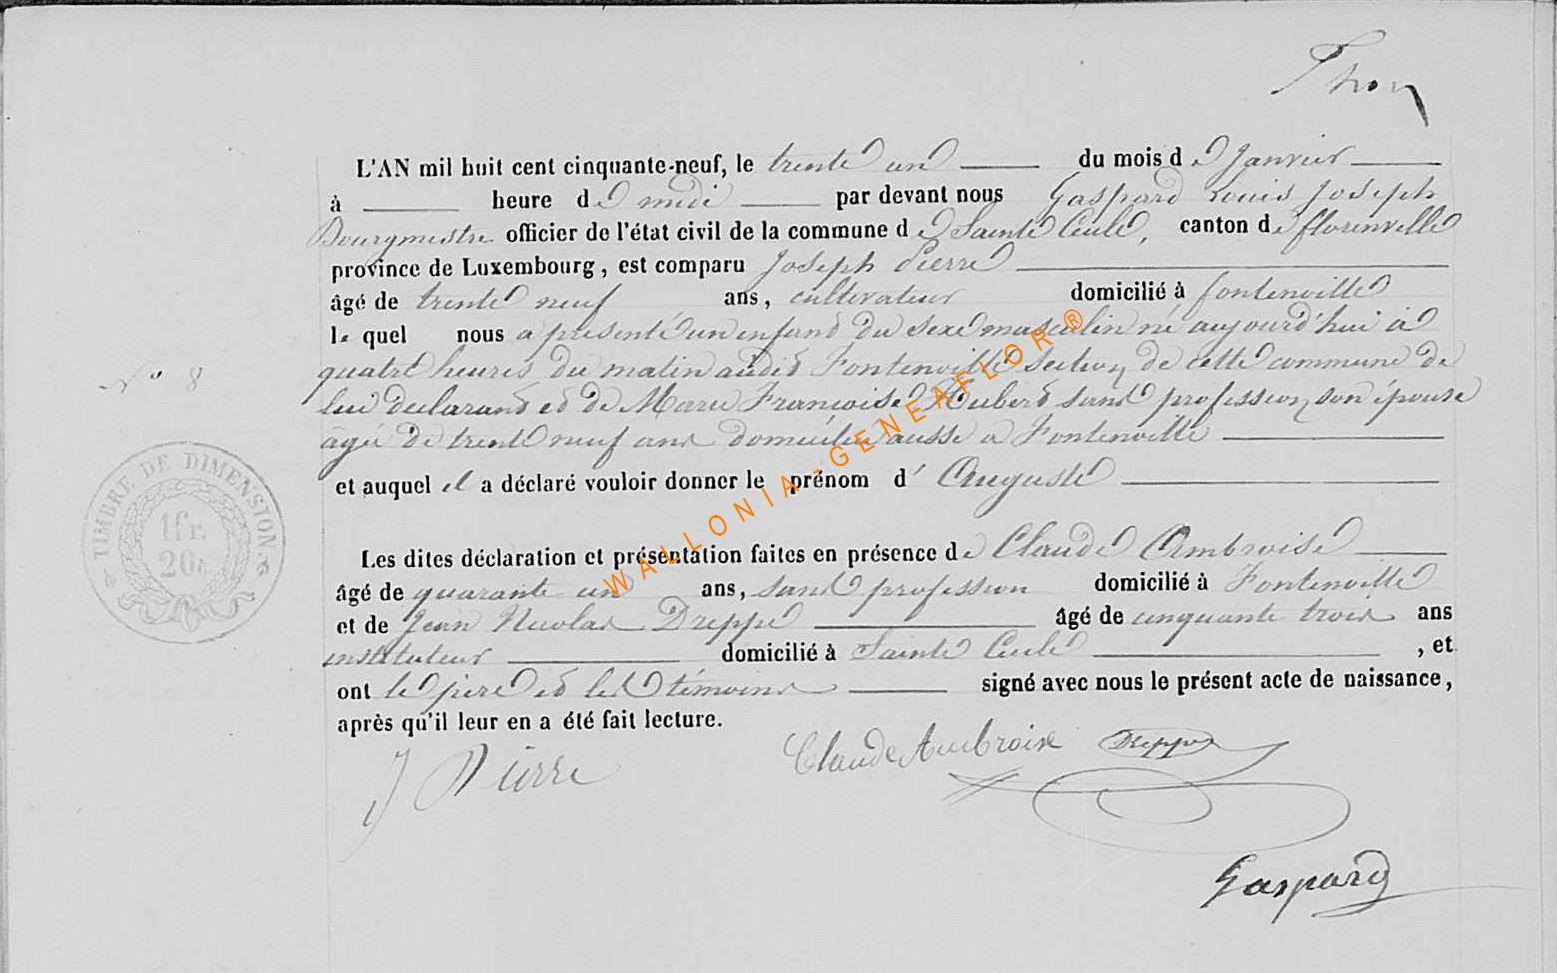 Thon
L'AN mil huit cent cinquante-neuf, le trente un du mois de Janvier
à heure de midi par devant nous Gaspard Louis Joseph
Bourgmestre officier de l'état civil de la commune de Sainte Cécile, canton de florenville
province de Luxembourg, est comparu Joseph Pierre
âgé de trente neuf ans, cultivateur domicilié à fontenoille
le quel nous a présenté un enfant du sexe masculin né aujourd'hui à
quatre heures du matin audit Fontenoille section de cette commune de
lui déclarant et de Marie Françoise Hubert sans profession son épouse
âgée de trente neuf ans domiciliée aussi à Fontenoille
et auquel il a déclaré vouloir donner le prénom d' Auguste
Les dites déclaration et présentation faites en présence de Claude Ambroise
âgé de quarante un ans, sans profession domicilié à Fontenoille
et de Jean Nicolas Dreppe âgé de cinquante trois ans
instituteur domicilié à Sainte Cécile, et
ont le père et les témoins signé avec nous le présent acte de naissance,
après qu'il leur en a été fait lecture.
J Pierre Claude Ambroise Dreppe
Gaspard
N° 8
TIMBRE DE DIMENSION.
1 fr.
20 c.
WALLONIA-GENEAFLOR®